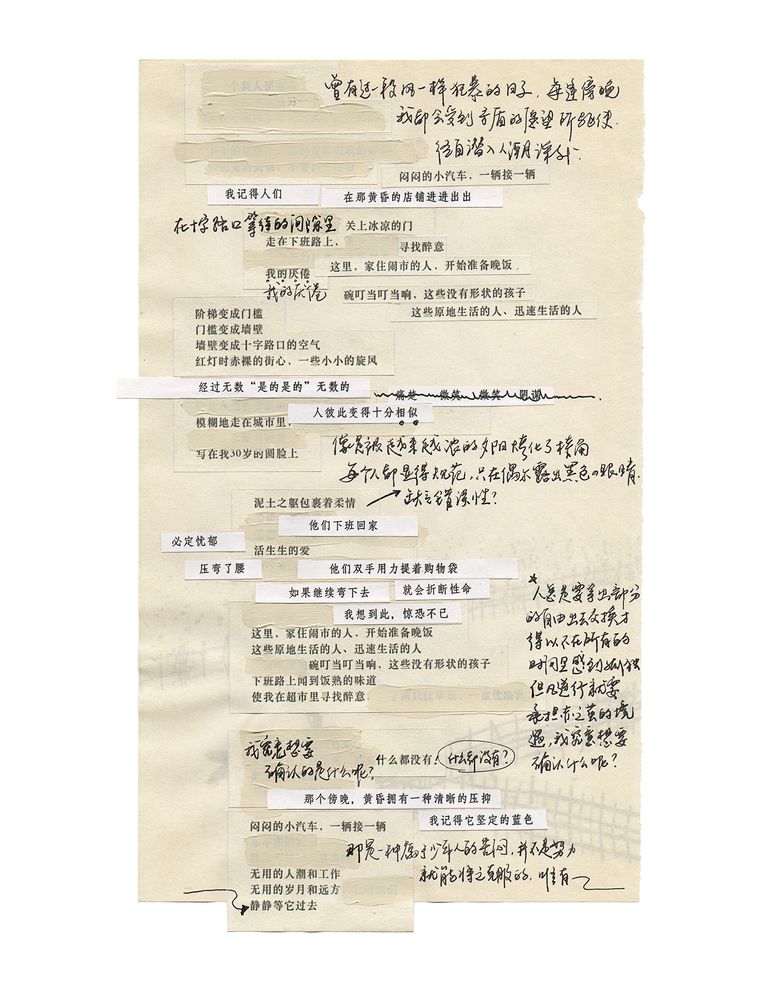 个新人
曾有过一段同样狂暴的日子，每逢傍晚
我却会受到矛盾的愿望所驱使
径自潜入人潮
闷闷的小汽车，一辆接一辆
我记得人们
在那黄昏的店铺进进出出
在十字路口等待的间隙里
关上冰凉的门
走在下班路上，
寻找醉意
我的厌倦
这里，家住闹市的人，开始准备晚饭
我的厌倦
碗叮当叮当响，这些没有形状的孩子
这些原地生活的人、迅速生活的人
阶梯变成门槛
门槛变成墙壁
墙壁变成十字路口的空气
红灯时赤裸的街心，一些小小的旋风
经过无数“是的是的”无数的
痛楚 微笑 微笑 阴谋
人彼此变得十分相似
模糊地走在城市里，
写在我30岁的圆脸上
像是被越来越浓的夕阳烤化了棱角
每个人都显得规范，只在偶尔露出黑色的眼睛
缺乏错误性？
泥土之躯包裹着柔情
他们下班回家
必定忧郁
活生生的爱
压弯了腰
他们双手用力提着购物袋
如果继续弯下去
就会折断性命
我想到此，惊恐不已
这里，家住闹市的人，开始准备晚饭
这些原地生活的人、迅速生活的人
碗叮当叮当响，这些没有形状的孩子
下班路上闻到饭熟的味道
使我在超市里寻找醉意
*人总是要拿出部分
的自由出去交换才
得以不在所有的
时间里感到孤独
但凡道行就要
承担赤之茧的境
遇，我究竟想要
确认什么呢？
我究竟想要
确认的是什么呢？
什么都没有！
什么都没有？
那个傍晚，黄昏拥有一种清晰的压抑
我记得它坚定的蓝色
闷闷的小汽车，一辆接一辆
那是一种属于少年人的苦闷，并不是努力
就能将之克服的，唯有
无用的人潮和工作
无用的岁月和远方
静静等它过去